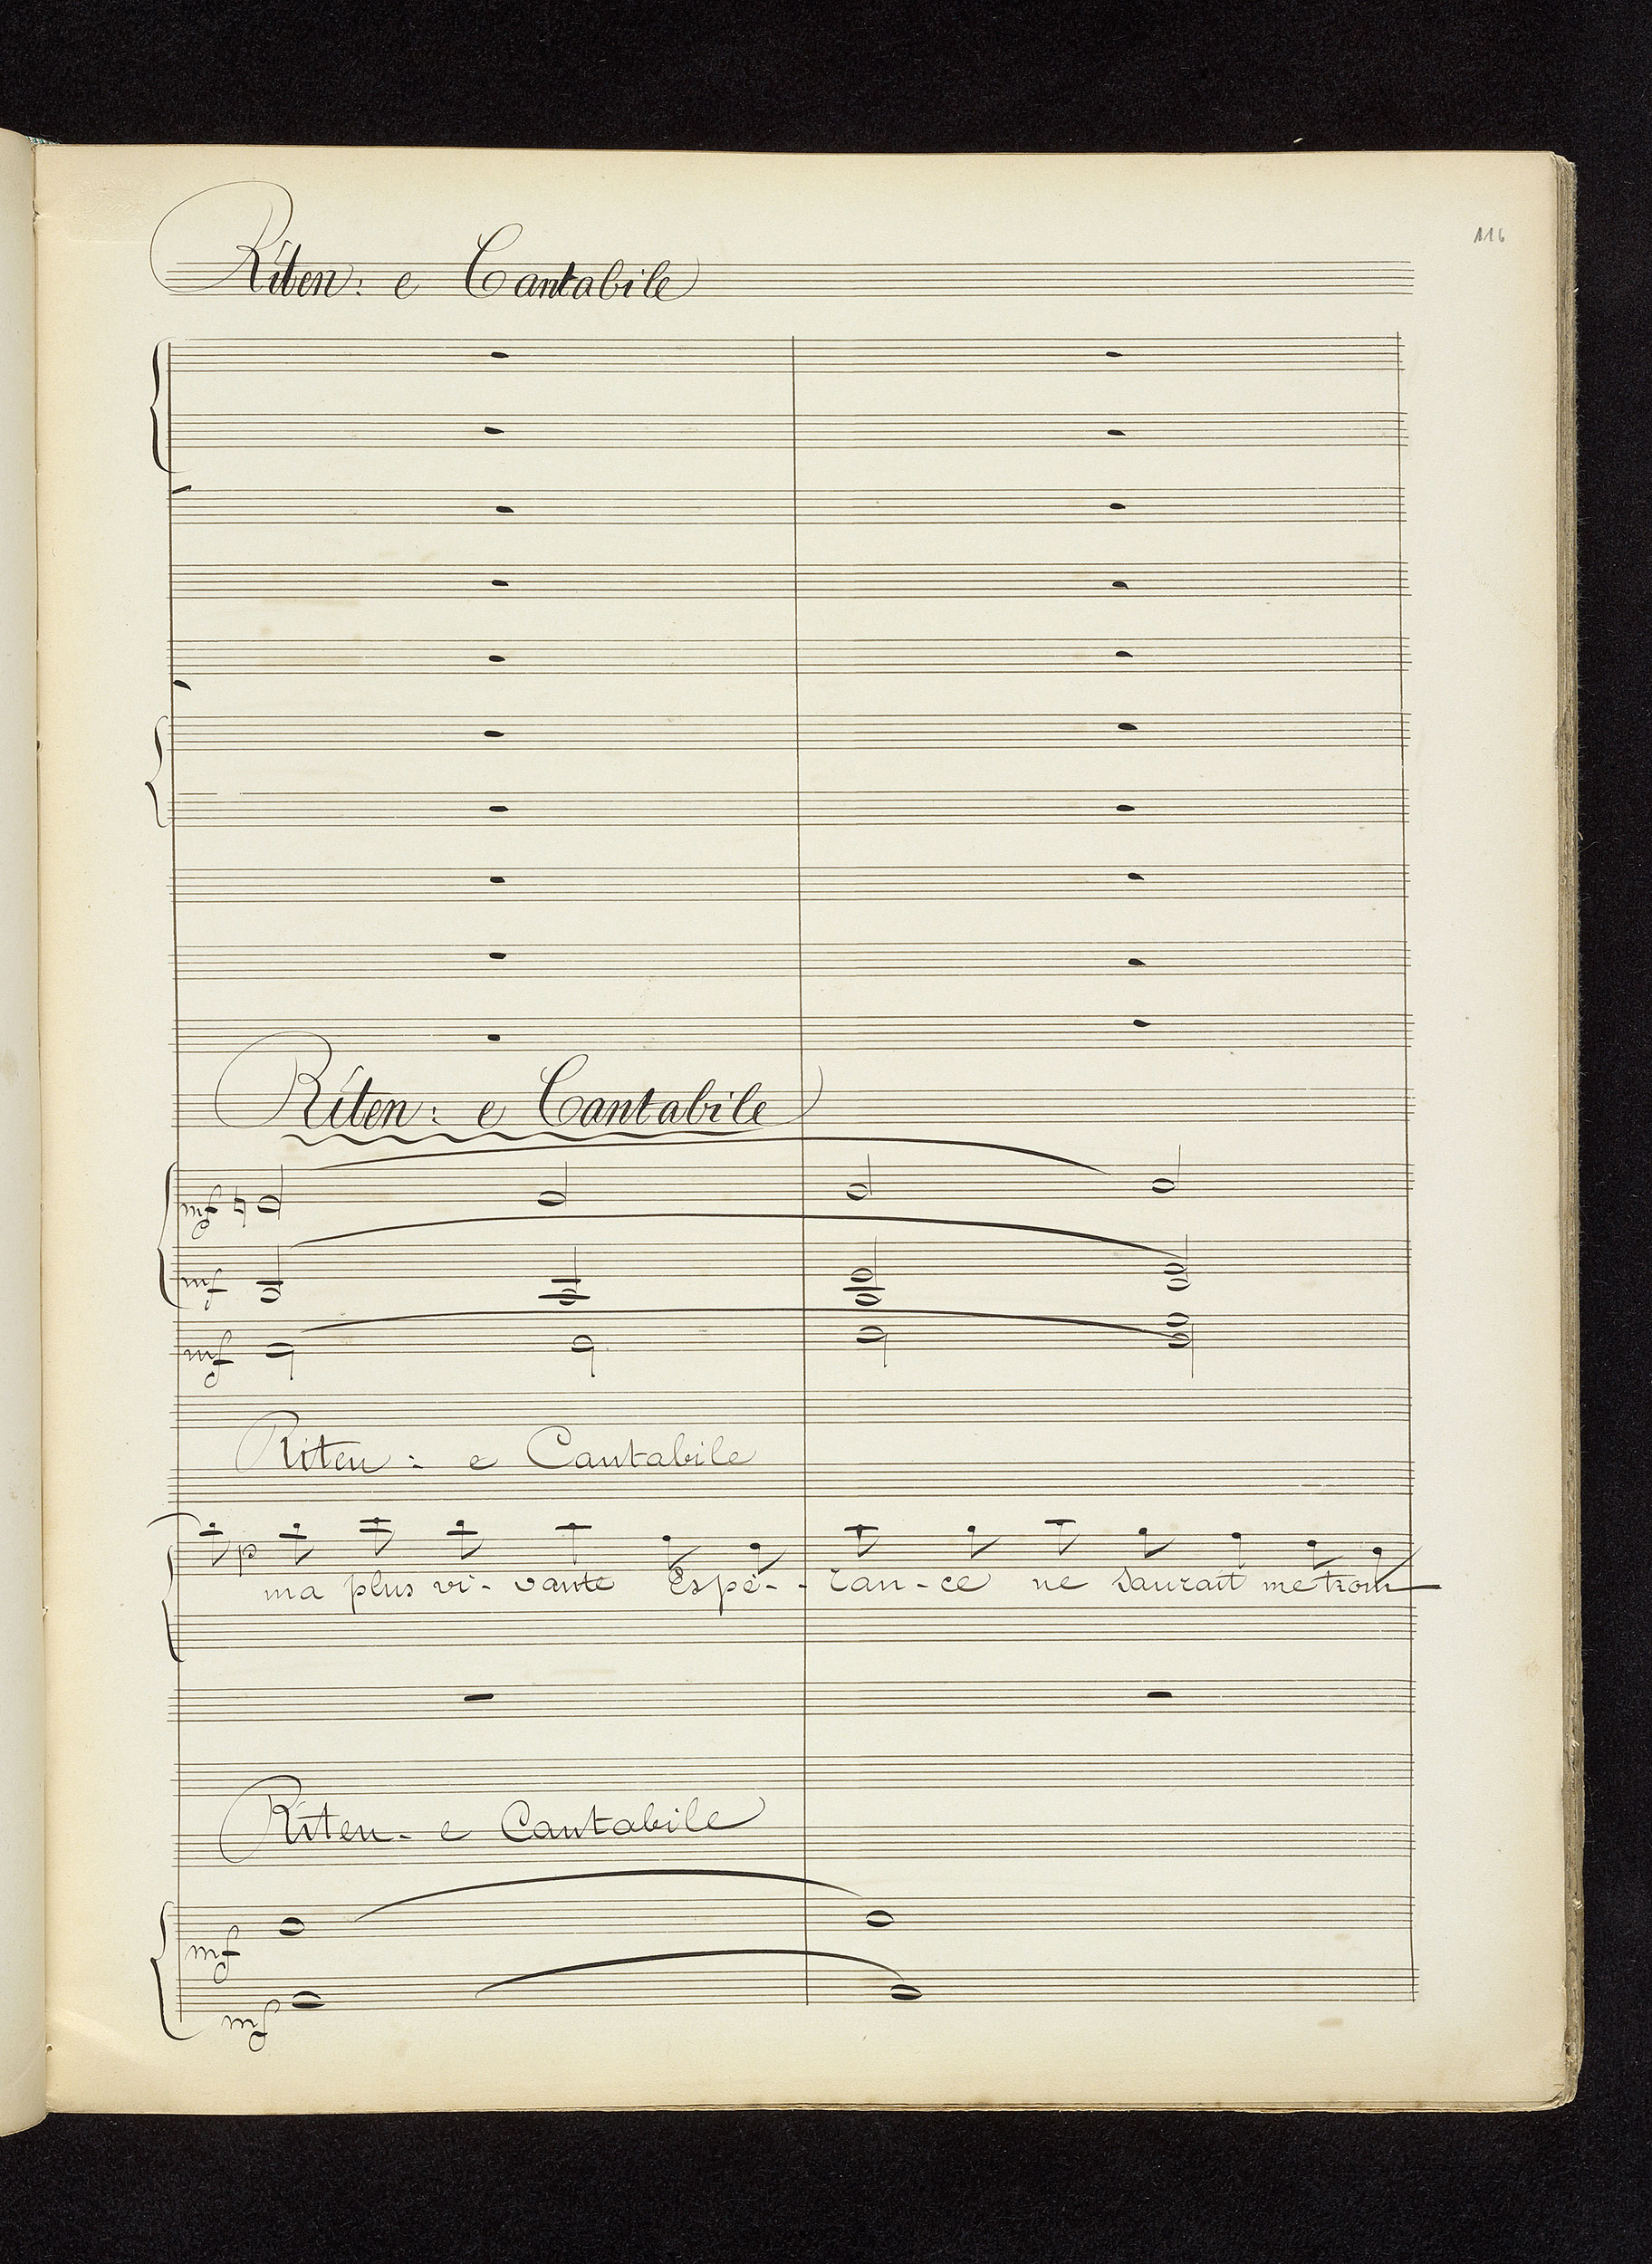 116
Riten: e Cantabile
Riten: e Cantabile
mf
mf
mf
Riten: e Cantabile
p
ma plus vi- vante Espé-- ran-ce ne Saurait me trom
Riten- e Cantabile
mf
mf